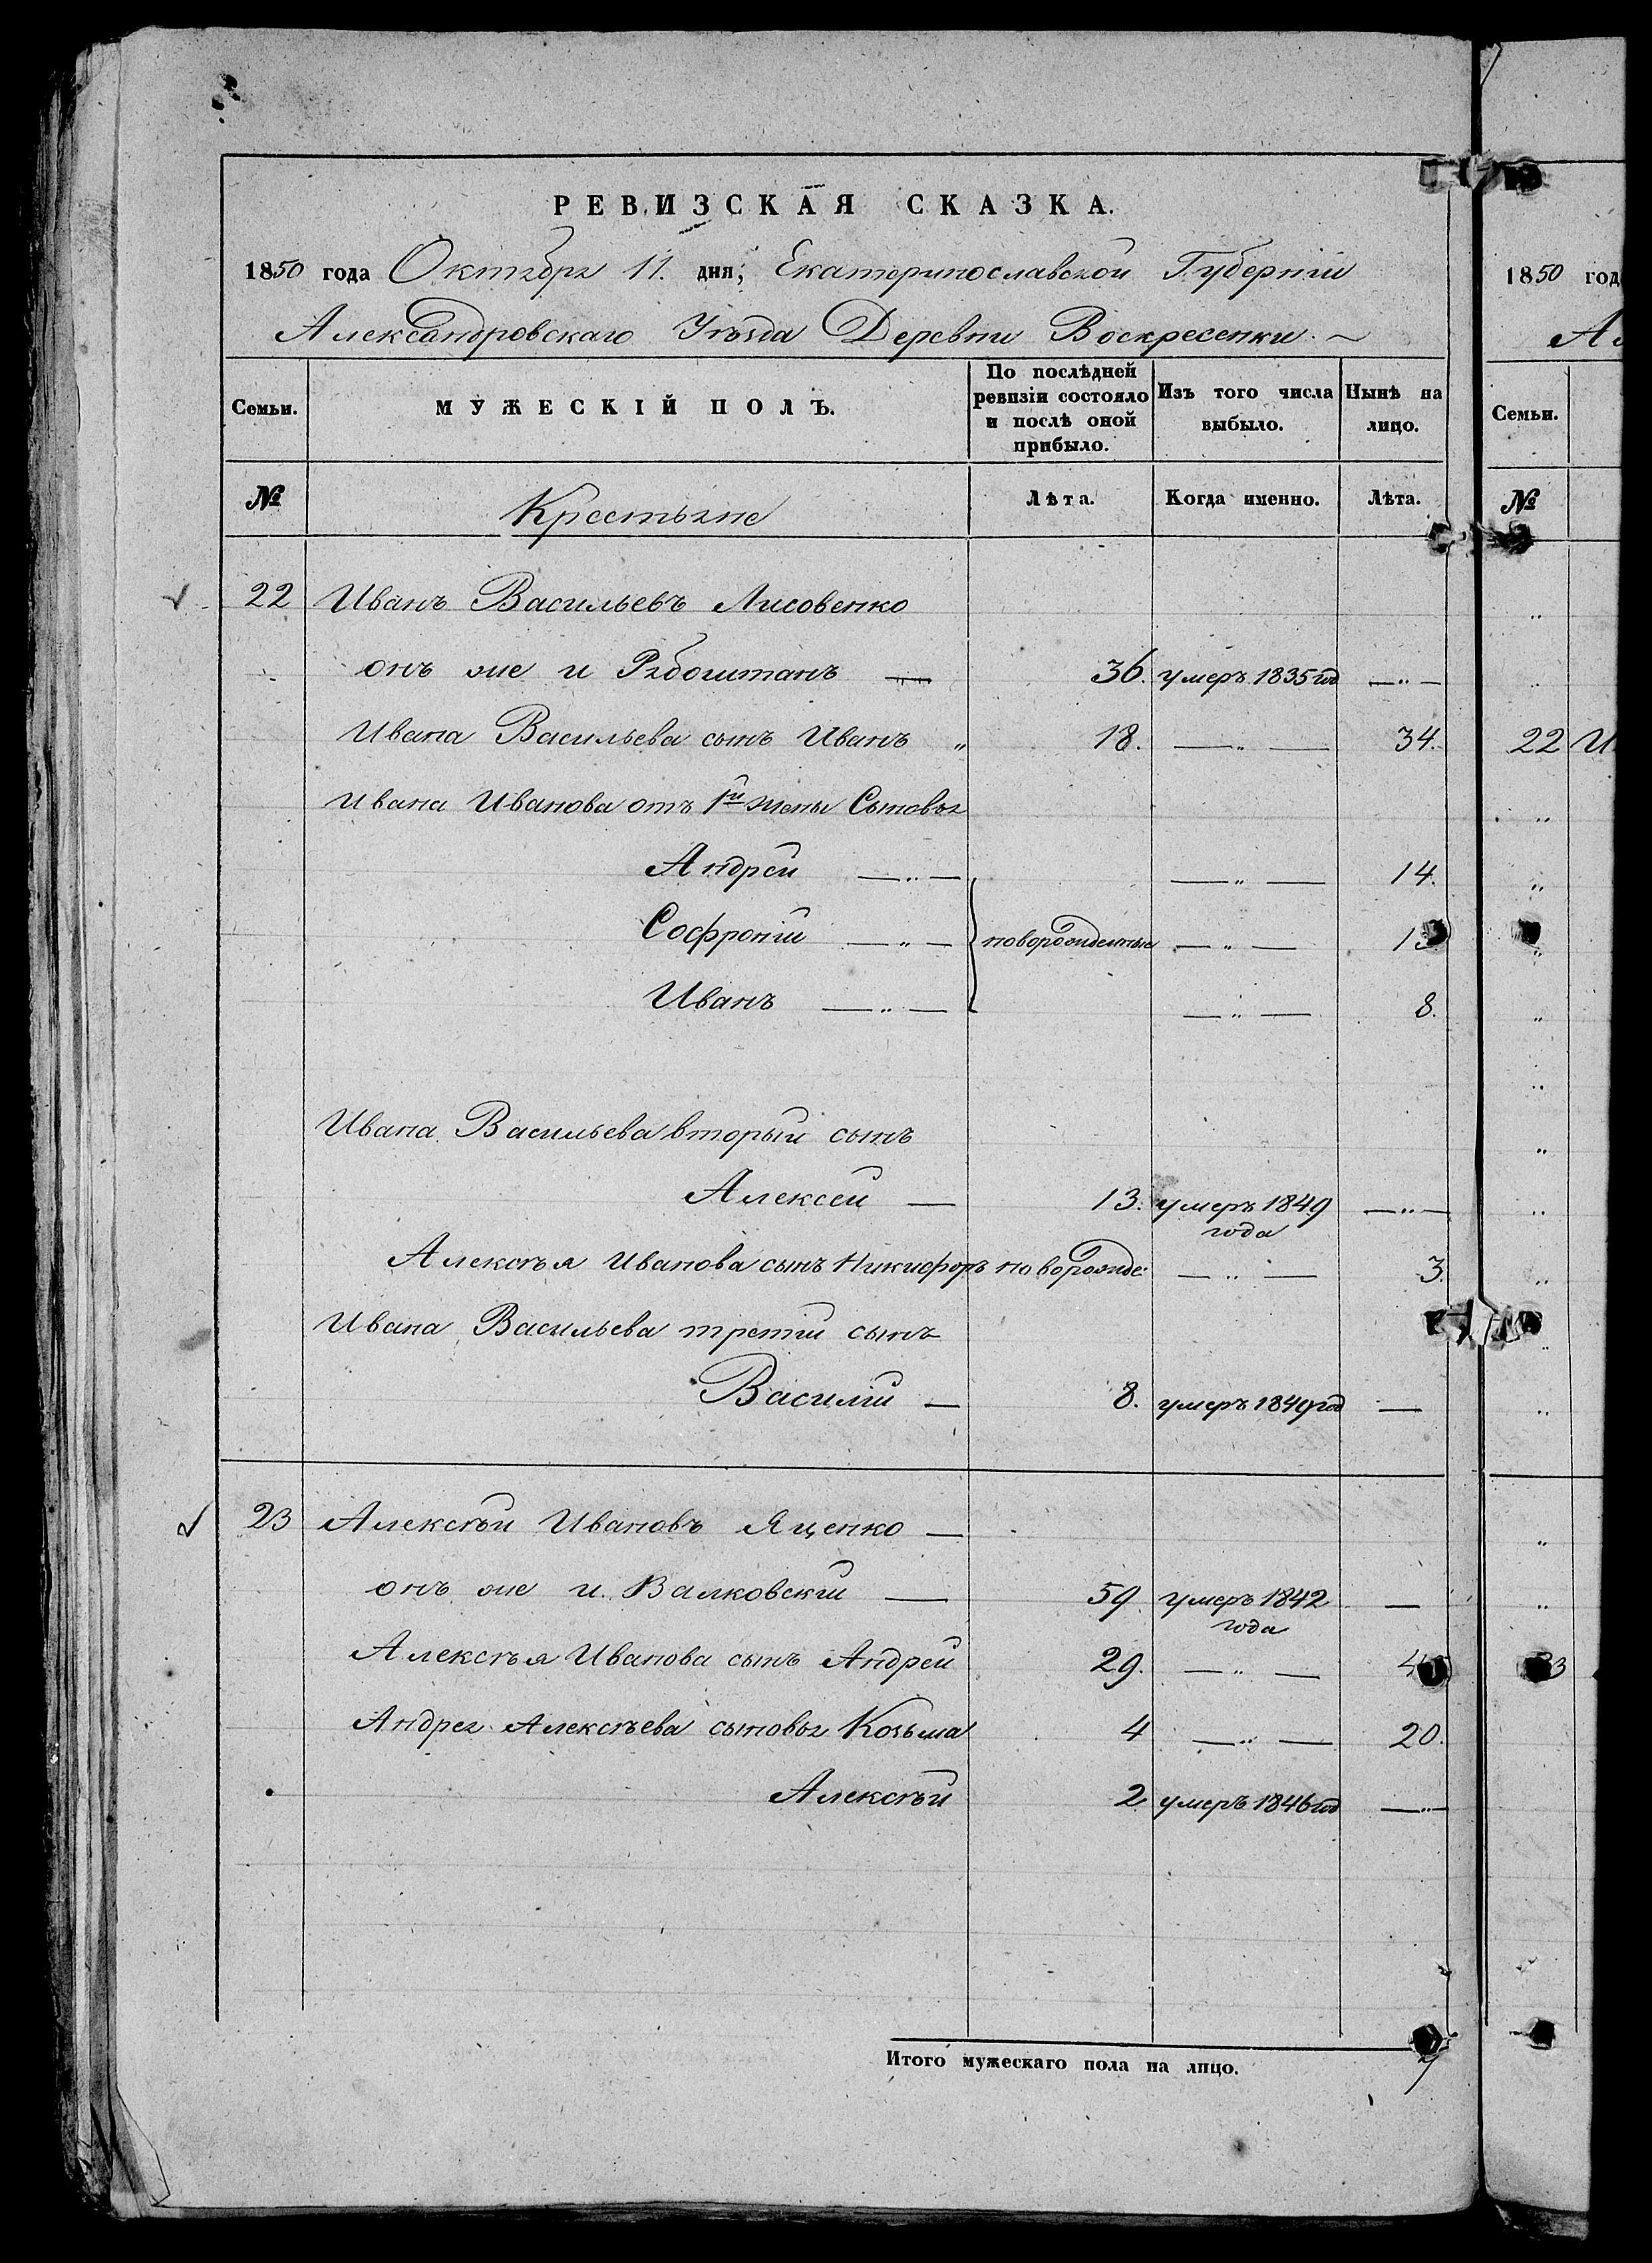 РЕВИЗСКАЯ СКАЗКА.
1850 года Октября 11. дня, Екатеринославской Губерніи
Александровскаго Уѣзда Деревни Воскресенки
Семьи. МУЖЕСКІЙ ПОЛЪ. По послѣдней ревизіи состояло и послѣ оной прибыло. Изъ того числа выбыло. Нынѣ на лицо.
№ Крестьяне Лѣта. Когда именно. Лѣта.
22 Иванъ Васильевъ Лисовенко
онъ же и Рябоштанъ — 36. умеръ 1835 год —„—
Ивана Васильева сынъ Иванъ „ 18. —„— 34.
Ивана Иванова отъ 1й жены Сыновья
Андрей —„— —„— 14.
Софроній —„— новорожденные —„— 1
Иванъ —„— —„— 8.
Ивана Васильева вторый сынъ
Алексей — 13. умеръ 1849 года —„—
Алексѣя Иванова сынъ Никифоръ новорожде: —„— 3.
Ивана Васильева третій сынъ
Василій — 8. умеръ 1849 год —
23 Алексѣй Ивановъ Яценко —
онъ же и Валковскій — 59. умеръ 1842 года —
Алексѣя Иванова сынъ Андрей 29. —„— 4
Андрея Алексѣева сыновья Козьма 4 —„— 20.
Алексѣй 2 умеръ 1846 год —„—
Итого мужескаго пола на лицо.
1850 год
А
Семьи.
№
22 И
3